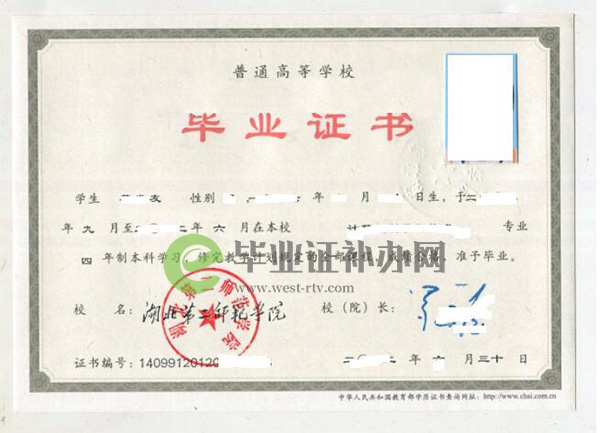 普通高等学校
毕业证书
学生 友 性别 年 月 日生，于二
年九月至二 二年六月在本校 计 专业
四年制本科学习，修完教学计划规定的全部课程，成绩合格，准予毕业。
毕业证补办网
www.west-rtv.com
校 名： 湖北第二师范学院 校（院）长：
湖北第二师范学院
证书编号：14099120120 二〇 二年六月三十日
中华人民共和国教育部学历证书查询网址：http://www.chsi.com.cn